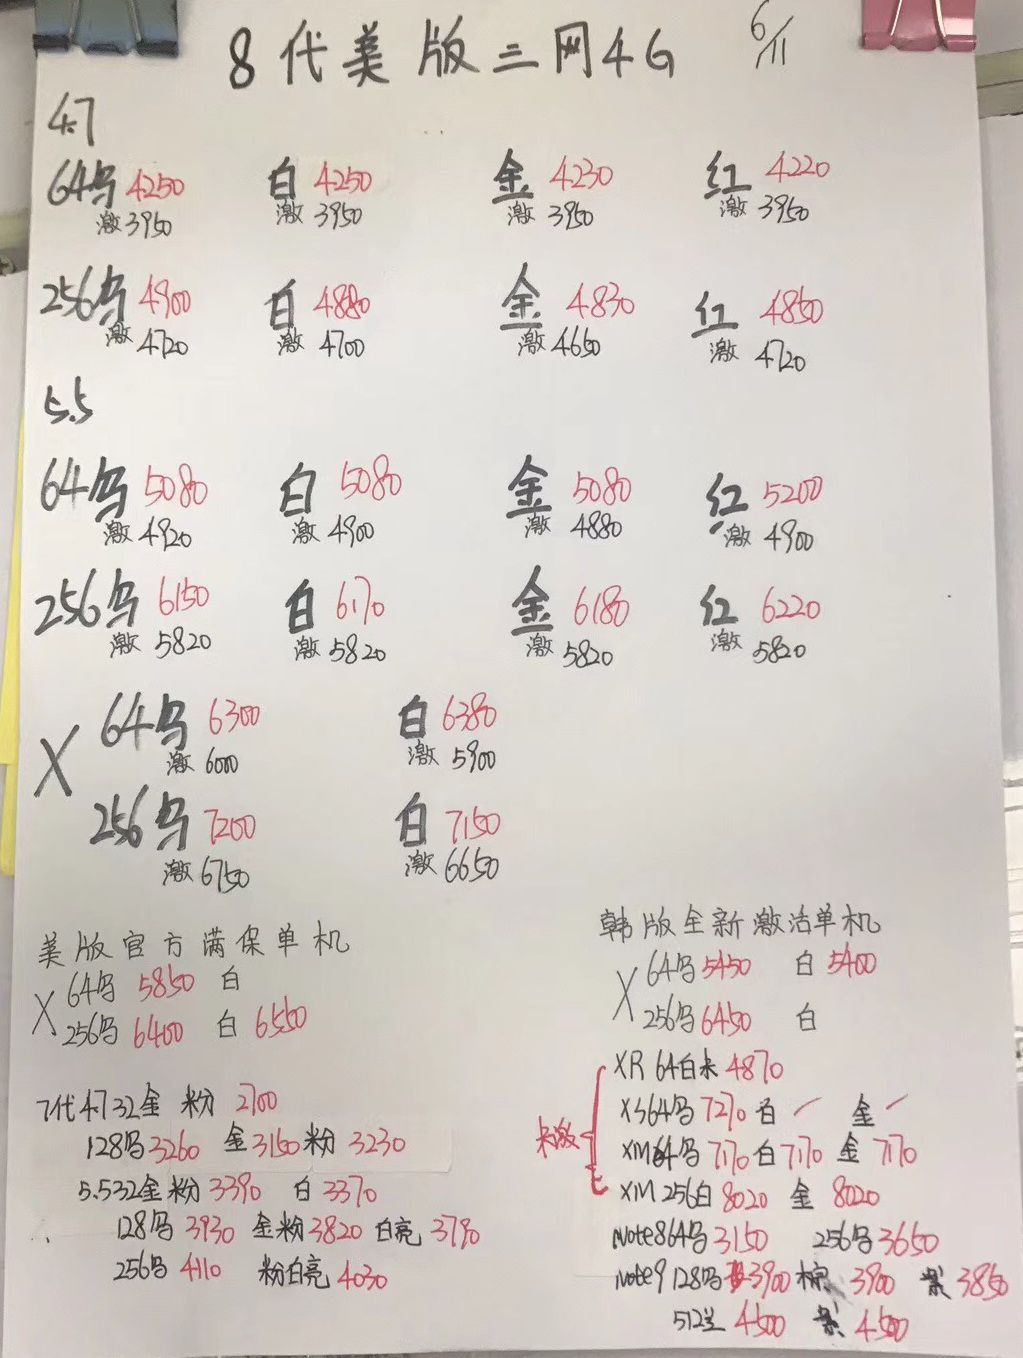 8代美版三网4G 6/11
4.7
64乌 4250 白 4250 金 4230 红 4220
激 3950 激 3950 激 3950 激 3950
256乌 4900 白 4880 金 4830 红 4850
激 4720 激 4700 激 4650 激 4720
5.5
64乌 5080 白 5080 金 5080 红 5200
激 4920 激 4900 激 4880 激 4900
256乌 6150 白 6170 金 6180 红 6220
激 5820 激 5820 激 5820 激 5820
X 64乌 6300 白 6380
激 6000 激 5900
256乌 7200 白 7150
激 6750 激 6650
美版官方满保单机
X 64乌 5850 白
256乌 6400 白 6550
7代4.732金 粉 2700
128乌 3260 金 3150 粉 3230
5.532金 粉 3390 白 3370
128乌 3930 金粉 3820 白亮 3790
256乌 4110 粉白亮 4030
韩版全新激活单机
X 64乌 5450 白 5400
256乌 6450 白
卡激
XR 64白卡 4870
XS64乌 7270 白 金
XM64乌 7170 白 7170 金 7170
XM 256白 8020 金 8020
Note864乌 3150 256乌 3650
Note9 128乌 3900 棕 3900 紫 3850
512兰 4500 紫 4500